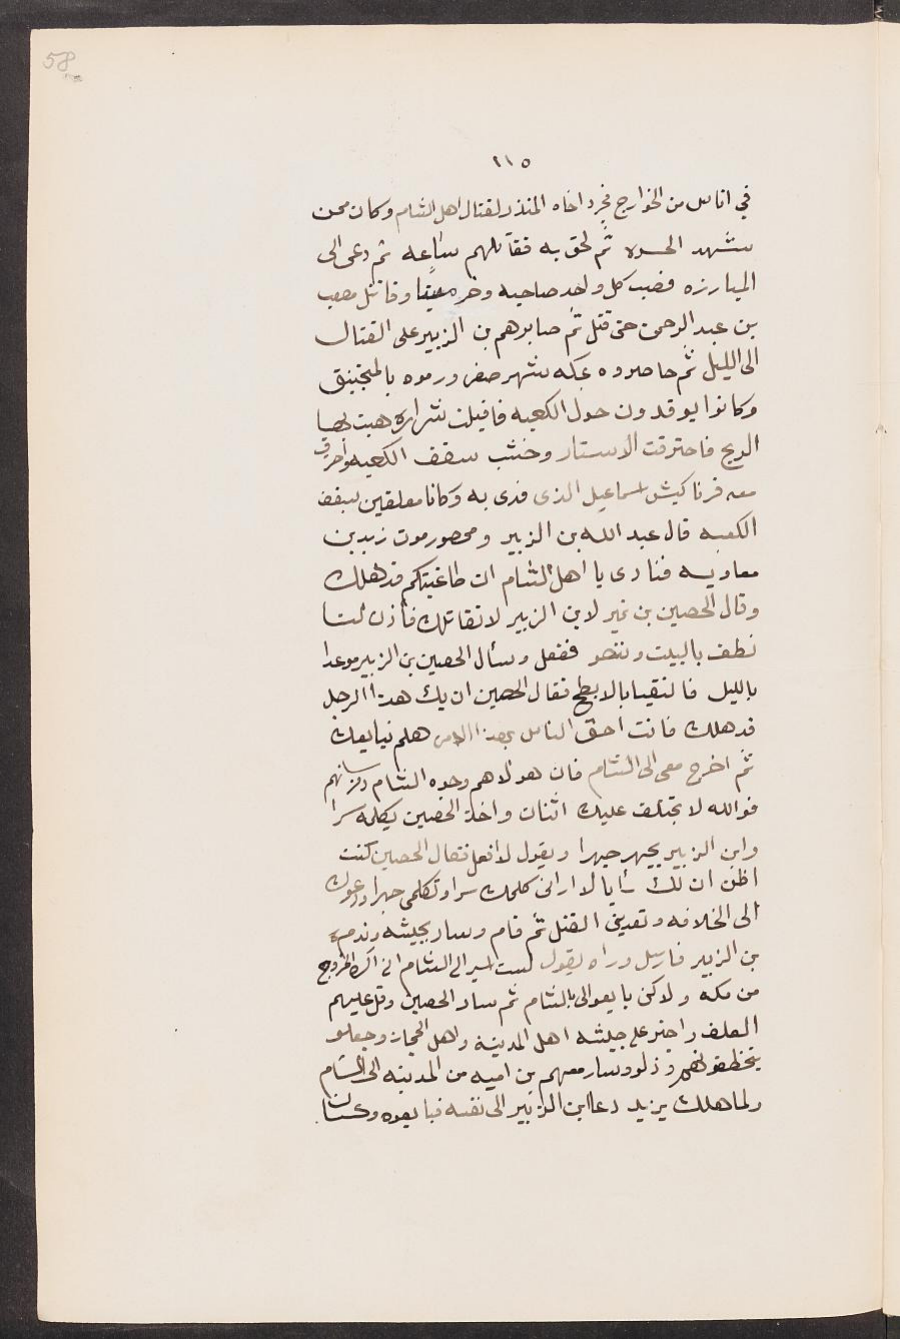 58
١١٥
في اناس من الخوارج فجرد اخاه المنذر لقتال اهل الشام وكان ممن
شهد الحره ثم لحق به فقاتلهم ساعه ثم دعى الى
المبارزه فضرب كل واحد صاحبه وخر ميتا وقاتل مصعب
بن عبد الرحمن حتى قتل ثم صابرهم بن الزبير على القتال
الى الليل ثم حاصروه بمكه شهر صفر ورموه بالمنجنيق
وكانوا يوقدون حول الكعبه فاقبلت شراره هبت بها
الريح فاحترقت الاستار وخشب سقف الكعبه واحرق
معه قرنا كبش اسماعيل الذى فدى به وكانا معلقين بسقف
الكعبه قال عبد الله بن الزبير ومحصور موت زيد بن
معاويه فنادى يا اهل الشام ان طاغيتكم قد هلك
وقال الحصين بن نمير لابن الزبير لا نقاتلك فأذن لنا
نطف بالبيت وننصر ففعل وسأل الحصين بن الزبير موعدا
بالليل فالتقيا بالابطح فقال الحصين ان يك هذا الرجل
قد هلك فانت احق الناس بهذا الامر هلم نبايعك
ثم اخرج معى الى الشام فان هولاهم وجوه الشام وفرسانهم
فوالله لا تختلف عليك اثنان واخذ الحصين يكلمه سرا
وابن الزبير يجهر جهرا ويقول لا افعل فقال الحصين كنت
اظن ان لك رأيا الا ارانى كلمك سرا وتكلمى جهرا وادعوك
الى الخلافه وتعدينى القتل ثم قام وسار بجيشه وندم
بن الزبير فارسل وراه يقول لست اسير الى الشام انى اكره الخروج
من مكه ولاكن بايعوا لى بالشام ثم سار الحصين وقل عليهم
العلف واجترء على جيشه اهل المدينه واهل الحجاز وجعلو
يتخطفونهم وذلو وسار معهم بن اميه من المدينه الى الشام
ولما هلك يزيد دعا ابن الزبير الى نفسه فبايعوه وكان